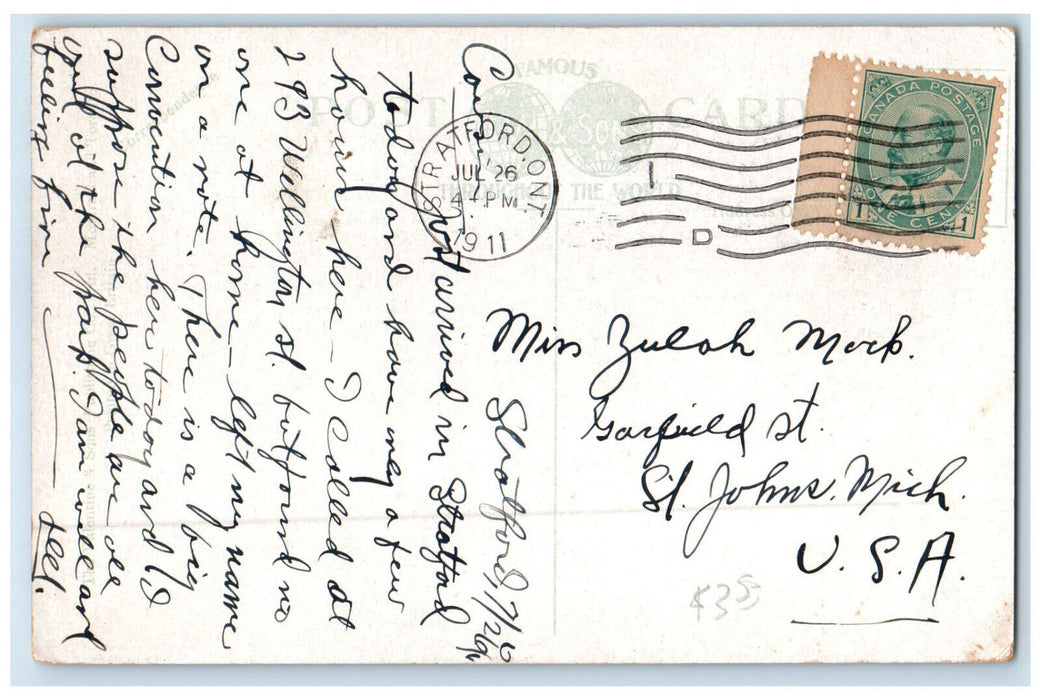 FAMOUS
POST CARD
& SONS
THROUGHOUT THE WORLD
STRATFORD, ONT.
JUL 26
4-PM
1911
D
CANADA POSTAGE
1 ONE CENT 1
Stratford, 7/26/11
Couz.
Just arrived in Stratford
today and have only a few
hours here - I called at
293 Wellington st. but found no
one at home - left my name
on a note. There is a big
Convention here today and I'd
suppose the people are all
out at the park. I am well and
feeling fine
Miss Zulah Mock.
Garfield st.
St. Johns. Mich.
U. S. A.